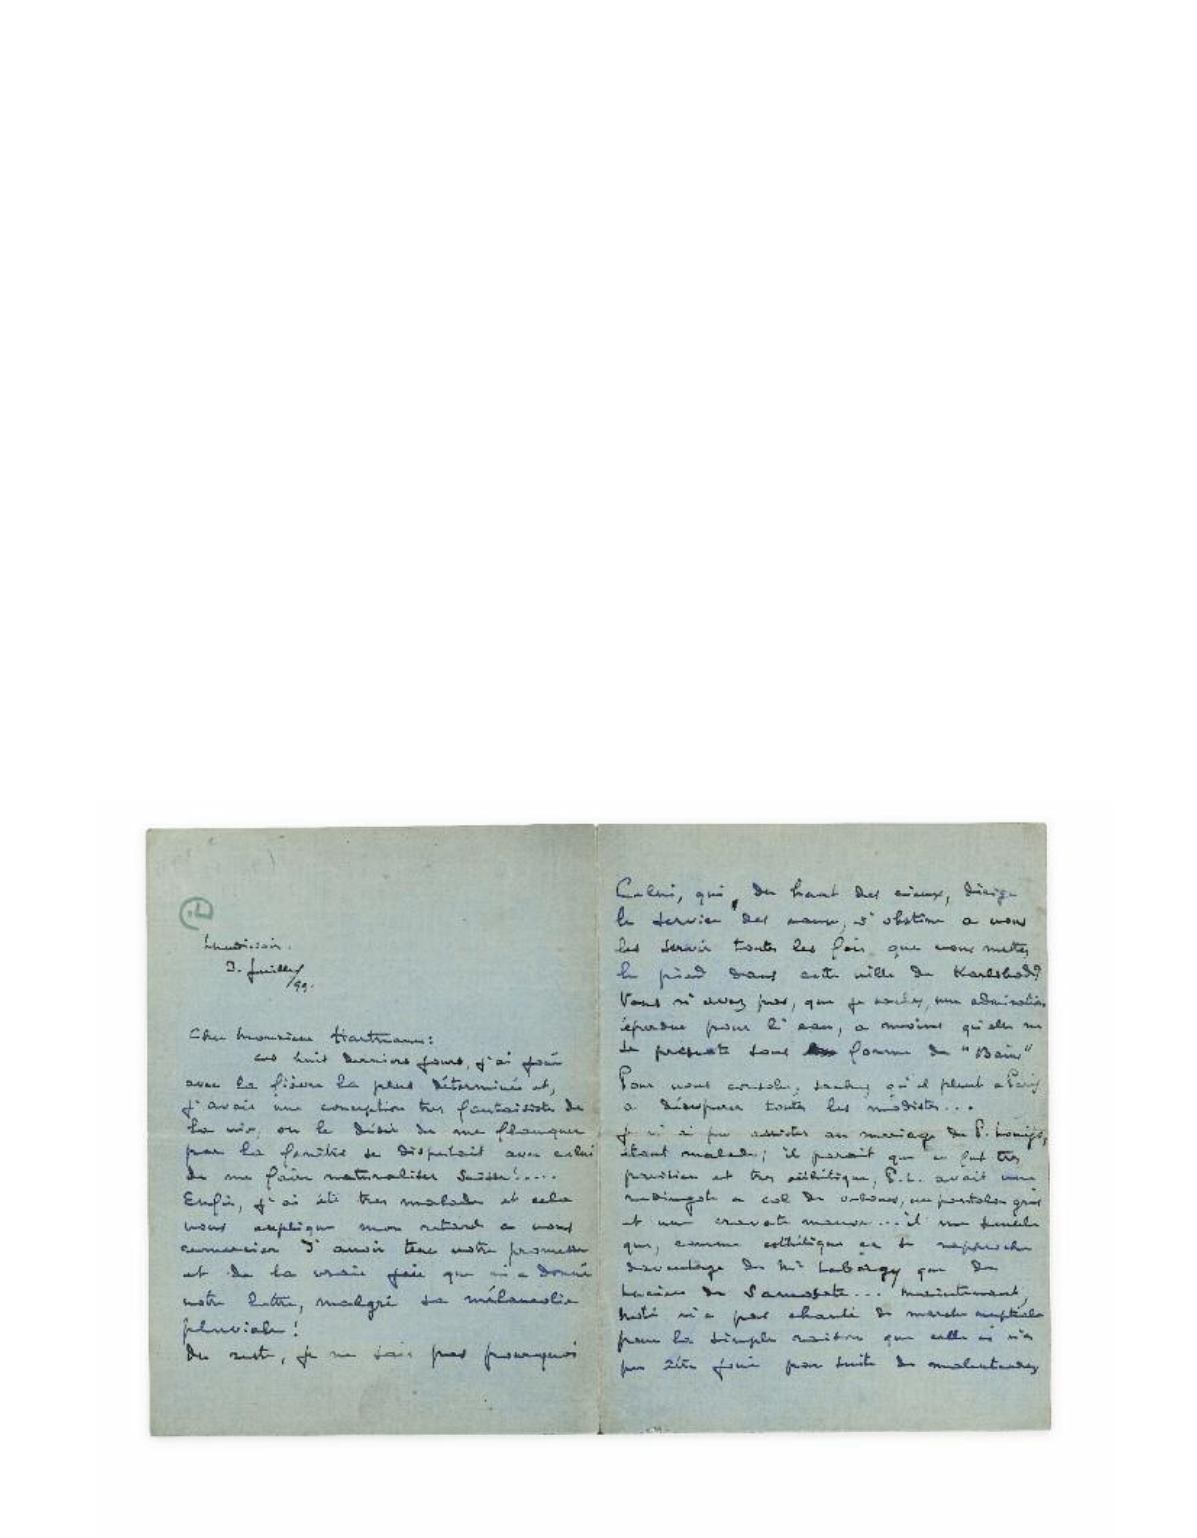 Lundi soir.
3. Juillet
/99.
Cher Monsieur Hartmann:
ces huit derniers jours, j'ai joué
avec la fièvre la plus déterminée et,
j'avais une conception très fantaisiste de
la vie, où le désir de me flanquer
par la fenêtre se disputait avec celui
de me faire naturaliser Suisse!....
Enfin, j'ai été très malade et cela
vous explique mon retard à vous
remercier d'avoir tenu votre promesse
et de la vraie joie que m'a donné
votre lettre, malgré sa mélancolie
pluviale!
Du reste, je ne sais pas pourquoi
Celui, qui, du haut des cieux, dirige
le service des eaux, s'obstine à vous
les servir toutes les fois que vous mettez
le pied dans cette ville de Karlsbad?
Vous n'avez pas, que je sache, une admiration
éperdue pour l'eau, à moins qu'elle ne
se présente sous forme de "Bain"
Pour vous consoler, sachez qu'il pleut à Paris
à désespérer toutes les modistes...
Je n'ai pu assister au mariage de P. Louÿs,
étant malade; il paraît que ce fut très
parisien et très esthétique, P.L. avait une
redingote à col de velours, un pantalon gris
et une cravate mauve... il me semble
que, comme esthétique ça se rapproche
davantage de Mr Labargy que de
Lucien de Samosate... maintenant,
n'a pas chanté de marche nuptiale
pour la simple raison que celle ci n'a
pu être joué par suite de malentendus